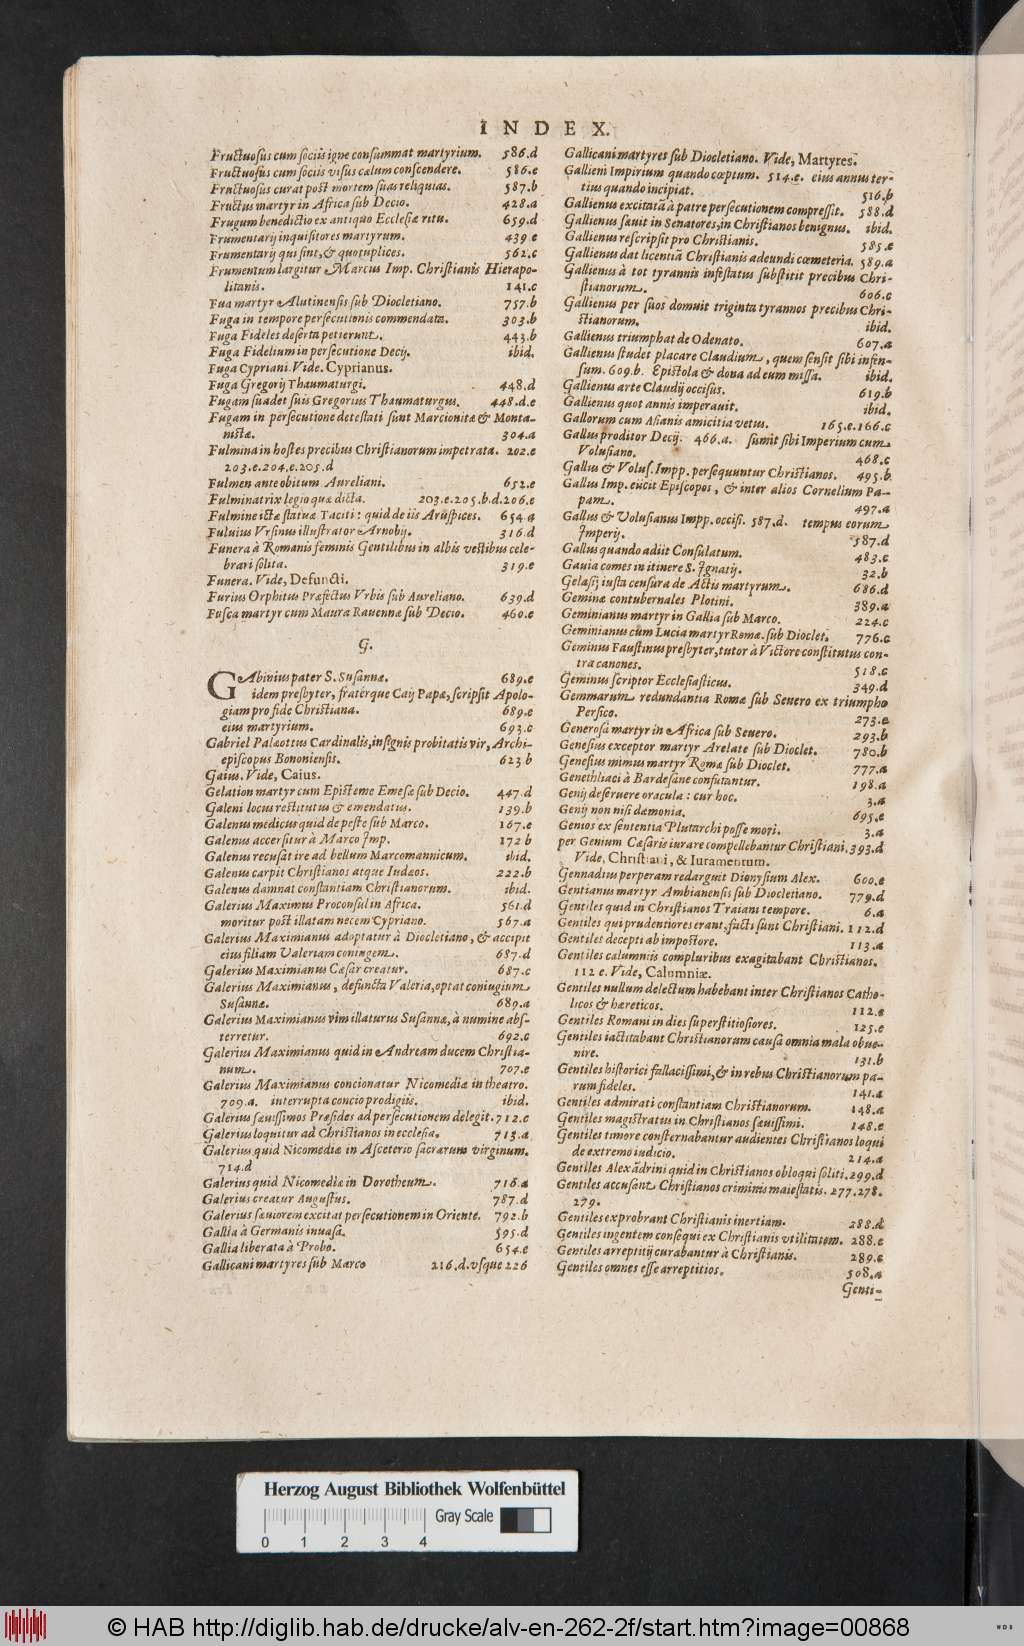 INDEX.
Fructuosus cum sociis igne consummat martyrium. 586.d
Fructuosus cum sociis visus cælum conscendere. 586.e
Fructuosus curat post mortem suas reliquias. 587.b
Fructus martyr in Africa sub Decio. 428.a
Frugum benedictio ex antiquo Ecclesiæ ritu. 659.d
Frumentarij inquisitores martyrum. 439.e
Frumentarij qui sint, & quotuplices. 562.c
Frumentum largitur Marcus Imp. Christianis Hierapo-
litanis. 141.c
Fua martyr Alutinensis sub Diocletiano. 757.b
Fuga in tempore persecutionis commendata. 303.b
Fuga Fideles deserta petierunt. 443.b
Fuga Fidelium in persecutione Decij. ibid.
Fuga Cypriani. Vide. Cyprianus.
Fuga Gregorij Thaumaturgi. 448.d
Fugam suadet suis Gregorius Thaumaturgus. 448.d.e
Fugam in persecutione detestati sunt Marcionitæ & Monta-
nistæ. 304.a
Fulmina in hostes precibus Christianorum impetrata. 202.e
203.e.204.e.205.d
Fulmen ante obitum Aureliani. 652.e
Fulminatrix legio quæ dicta. 203.e.205.b.d.206.e
Fulmine ictæ statuæ Taciti: quid de iis Aruspices. 654.a
Fuluius Vrsinus illustrator Arnobij. 316.d
Funera à Romanis feminis Gentilibus in albis vestibus cele-
brari solita. 319.e
Funera. Vide, Defuncti.
Furius Orphitus Præfectus Vrbis sub Aureliano. 639.d
Fusca martyr cum Maura Rauennæ sub Decio. 460.e
G.
GAbinius pater S. Susannæ. 689.e
idem presbyter, fraterque Caij Papæ, scripsit Apolo-
giam pro fide Christiana. 689.e
eius martyrium. 693.c
Gabriel Palæottus Cardinalis, insignis probitatis vir, Archi-
episcopus Bononiensis. 623.b
Gaius. Vide, Caius.
Gelation martyr cum Episteme Emesæ sub Decio. 447.d
Galeni locus restitutus & emendatus. 139.b
Galenus medicus quid de peste sub Marco. 167.e
Galenus accersitur à Marco Imp. 172.b
Galenus recusat ire ad bellum Marcomannicum. ibid.
Galenus carpit Christianos atque Iudæos. 222.b
Galenus damnat constantiam Christianorum. ibid.
Galerius Maximus Proconsul in Africa. 561.d
moritur post illatam necem Cypriano. 567.a
Galerius Maximianus adoptatur à Diocletiano, & accipit
eius filiam Valeriam coniugem. 687.d
Galerius Maximianus Cæsar creatur. 687.c
Galerius Maximianus, defuncta Valeria, optat coniugium
Susannæ. 689.a
Galerius Maximianus vim illaturus Susannæ, à numine abs-
terretur. 692.c
Galerius Maximianus quid in Andream ducem Christia-
num. 707.e
Galerius Maximianus concionatur Nicomediæ in theatro.
709.a. interrupta concio prodigiis. ibid.
Galerius sæuissimos Præsides ad persecutionem delegit. 712.c
Galerius loquitur ad Christianos in ecclesia. 713.a
Galerius quid Nicomediæ in Asceterio sacrarum virginum.
714.d
Galerius quid Nicomediæ in Dorotheum. 716.a
Galerius creatur Augustus. 787.d
Galerius sæuiorem excitat persecutionem in Oriente. 792.b
Gallia à Germanis inuasa. 595.d
Gallia liberata à Probo. 654.e
Gallicani martyres sub Marco 216.d.vsque 226
Gallicani martyres sub Diocletiano. Vide, Martyres.
Gallieni Impirium quando cœptum. 514.e. eius annus ter-
tius quando incipiat. 516.b
Gallienus excitatã à patre persecutionem compressit. 588.d
Gallienus sæuit in Senatores, in Christianos benignus. ibid.
Gallienus rescripsit pro Christianis. 585.e
Gallienus dat licentiã Christianis adeundi cœmeteria. 589.a
Gallienus à tot tyrannis infestatus substitit precibus Chri-
stianorum. 606.c
Gallienus per suos domuit triginta tyrannos precibus Chri-
stianorum. ibid.
Gallienus triumphat de Odenato. 607.a
Gallienus studet placare Claudium, quem sensit sibi infen-
sum. 609.b. Epistola & dona ad eum missa. ibid.
Gallienus arte Claudij occisus. 619.b
Gallienus quot annis imperauit. ibid.
Gallorum cum Asianis amicitia vetus. 165.e.166.c
Gallus proditor Decij. 466.a. sumit sibi Imperium cum
Volusiano. 468.c
Gallus & Volus. Impp. persequuntur Christianos. 495.b.
Gallus Imp. eiicit Episcopos, & inter alios Cornelium Pa-
pam. 497.a
Gallus & Volusianus Impp. occisi. 587.d. tempus eorum
Imperij. 587.d
Gallus quando adiit Consulatum. 483.c
Gauia comes in itinere S. Ignatij. 32.b
Gelasij iusta censura de Actis martyrum. 686.d
Geminæ contubernales Plotini. 389.a
Geminianus martyr in Gallia sub Marco. 224.c
Geminianus cum Lucia martyr Romæ. sub Dioclet. 776.c
Geminus Faustinus presbyter, tutor à Victore constitutus con-
tra canones. 518.c
Geminus scriptor Ecclesiasticus. 349.d
Gemmarum redundantia Romæ sub Seuero ex triumpho
Persico. 273.e
Generosa martyr in Africa sub Seuero. 293.b
Genesius exceptor martyr Arelate sub Dioclet. 780.b
Genesius mimus martyr Romæ sub Dioclet. 777.a
Genethliaci à Bardesane confutantur. 198.a
Genij deseruere oracula: cur hoc. 3.a
Genij non nisi dæmonia. 695.e
Genios ex sententia Plutarchi posse mori. 3.a
per Genium Cæsaris iurare compellebantur Christiani. 393.d
Vide, Christiani, & Iuramentum.
Gennadius perperam redarguit Dionysium Alex. 600.e
Gentianus martyr Ambianensis sub Diocletiano. 779.d
Gentiles quid in Christianos Traiani tempore. 6.a
Gentiles qui prudentiores erant, facti sunt Christiani. 112.d
Gentiles decepti ab impostore. 113.a
Gentiles calumniis compluribus exagitabant Christianos.
112 e. Vide, Calumniæ.
Gentiles nullum delectum habebant inter Christianos Catho-
licos & hæreticos. 112.e
Gentiles Romani in dies superstitiosiores. 125.e
Gentiles iactitabant Christianorum causa omnia mala obue-
nire. 131.b
Gentiles historici fallacissimi, & in rebus Christianorum pa-
rum fideles. 141.a
Gentiles admirati constantiam Christianorum. 148.a
Gentiles magistratus in Christianos sæuissimi. 148.e
Gentiles timore consternabantur audientes Christianos loqui
de extremo iudicio. 214.a
Gentiles Alexãdrini quid in Christianos obloqui soliti. 299.d
Gentiles accusant Christianos criminis maiestatis. 277.278.
279.
Gentiles exprobrant Christianis inertiam. 288.d
Gentiles ingentem consequi ex Christianis vtilitatem. 288.e
Gentiles arreptitij curabantur à Christianis. 289.c
Gentiles omnes esse arreptitios. 508.a
Genti-
Herzog August Bibliothek Wolfenbüttel
Gray Scale
0 1 2 3 4
© HAB http://diglib.hab.de/drucke/alv-en-262-2f/start.htm?image=00868